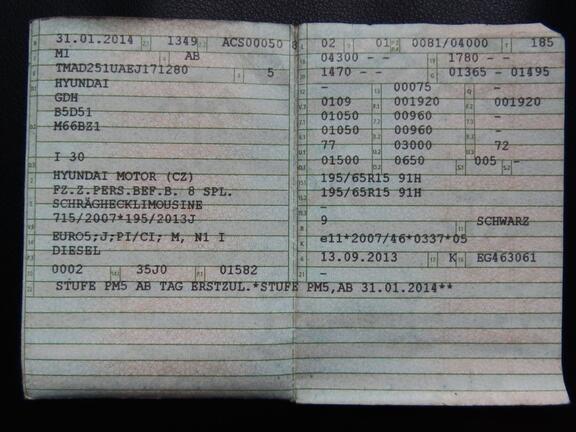 31.01.2014 1349 ACS00050 8
M1 AB
TMAD251UAEJ171280 5
HYUNDAI
GDH
B5D51
M66BZ1
I 30
HYUNDAI MOTOR (CZ)
FZ.Z.PERS.BEF.B. 8 SPL.
SCHRÄGHECKLIMOUSINE
715/2007*195/2013J
EURO5;J;PI/CI; M, N1 I
DIESEL
0002 35J0 01582
STUFE PM5 AB TAG ERSTZUL.*STUFE PM5,AB 31.01.2014**
02 01 0081/04000 185
04300 - - 1780 - -
1470 - - 01365 - 01495
- 00075 -
0109 001920 001920
01050 00960 -
01050 00960 -
77 03000 72
01500 0650 005 -
195/65R15 91H
195/65R15 91H
-
9 SCHWARZ
e11*2007/46*0337*05
13.09.2013 K EG463061
-